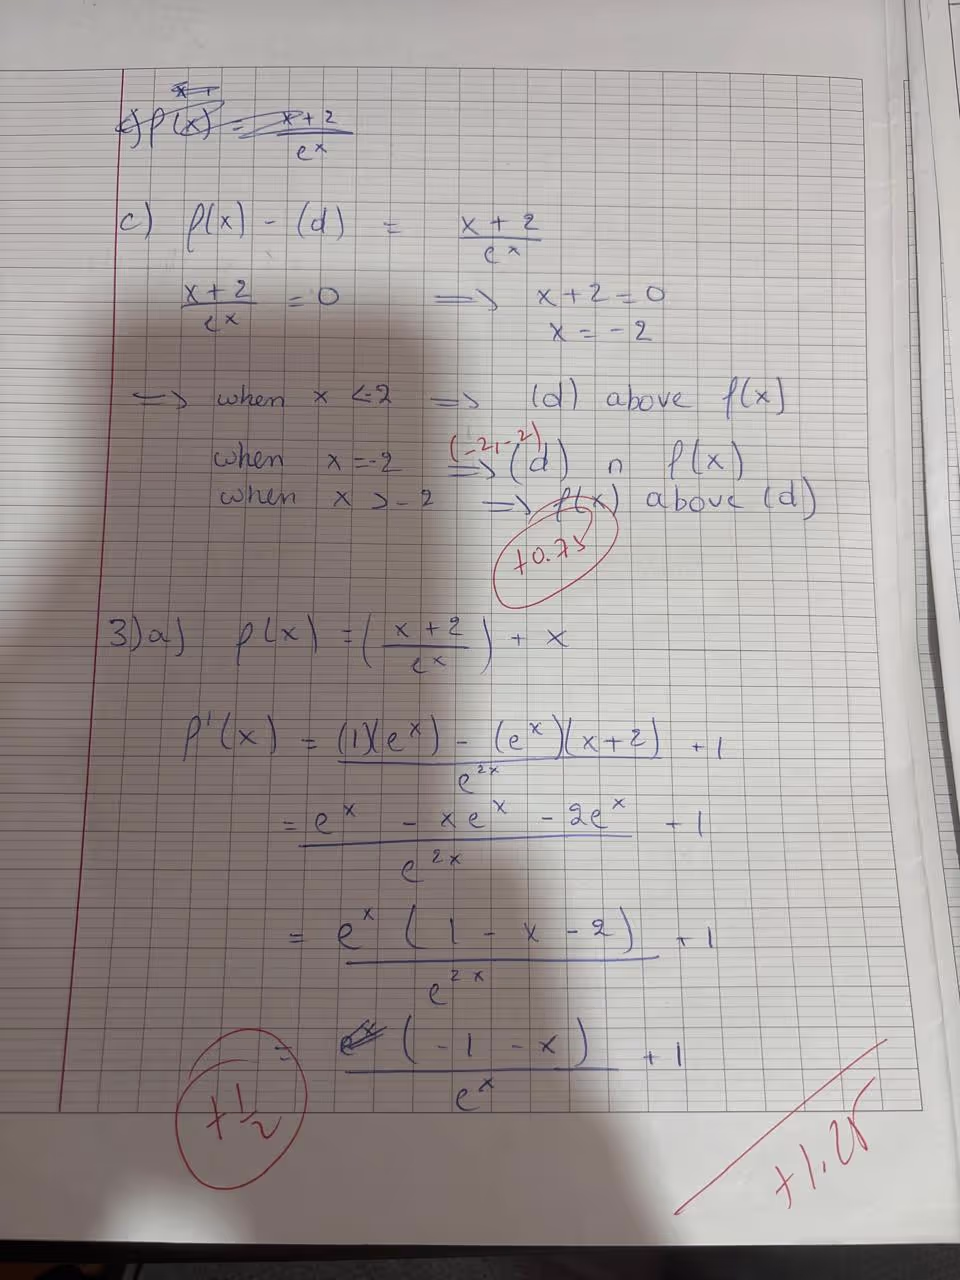 c) f(x) = x+2 / e^x
c) f(x) - (d) = x + 2 / e^x
x + 2 / e^x = 0 ⟹ x + 2 = 0
x = -2
⟹ when x < -2 ⟹ (d) above f(x)
(-2, -2)
when x = -2 ⟹ (d) ∩ f(x)
when x > -2 ⟹ f(x) above (d)
+0.75
3) a) f(x) = (x + 2 / e^x) + x
f'(x) = (1)(e^x) - (e^x)(x+2) / e^2x + 1
= e^x - xe^x - 2e^x / e^2x + 1
= e^x (1 - x - 2) / e^2x + 1
= (-1 - x) / e^x + 1
+1/2
+1.25